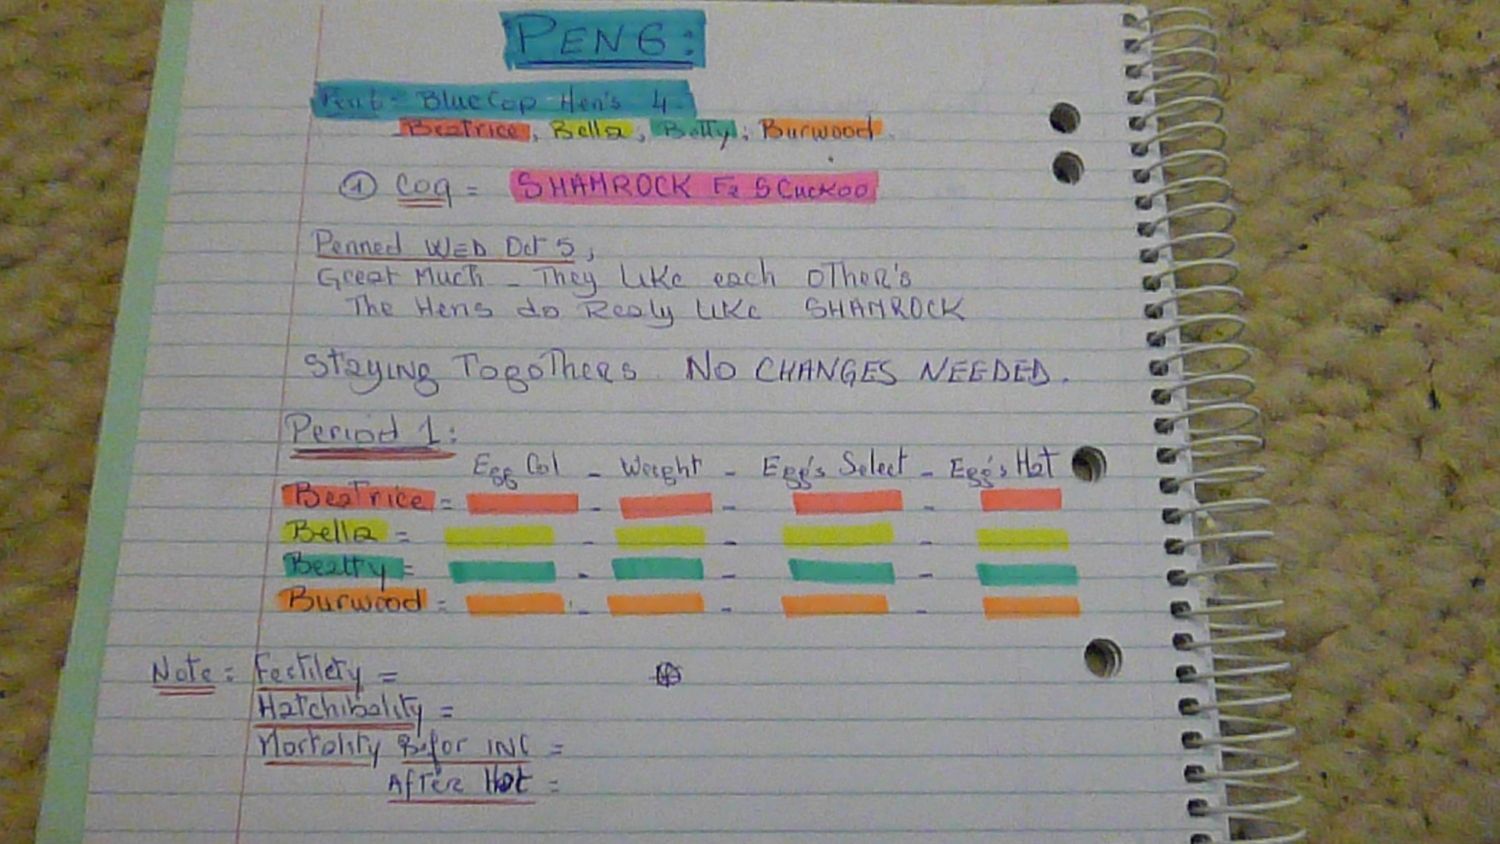 PEN 6:
Pen 6 = Blue Cop Hen's 4.
Beatrice, Bella, Betty, Burwood.
① Coq = SHAMROCK F2 S Cuckoo
Penned WED Oct 5,
Great Much - They Like each oTher's
The Hens do Realy LIKe SHAMROCK
STaying TogoThers. NO CHANGES NEEDED.
Period 1:
Egg Col - Weight - Egg's Select - Egg's Hat
Beatrice = - - -
Bella = - - -
Beatty = - - -
Burwood = - - -
Note: Fertilety =
Hatchibality =
Mortality Befor INC =
AfTer Hat =